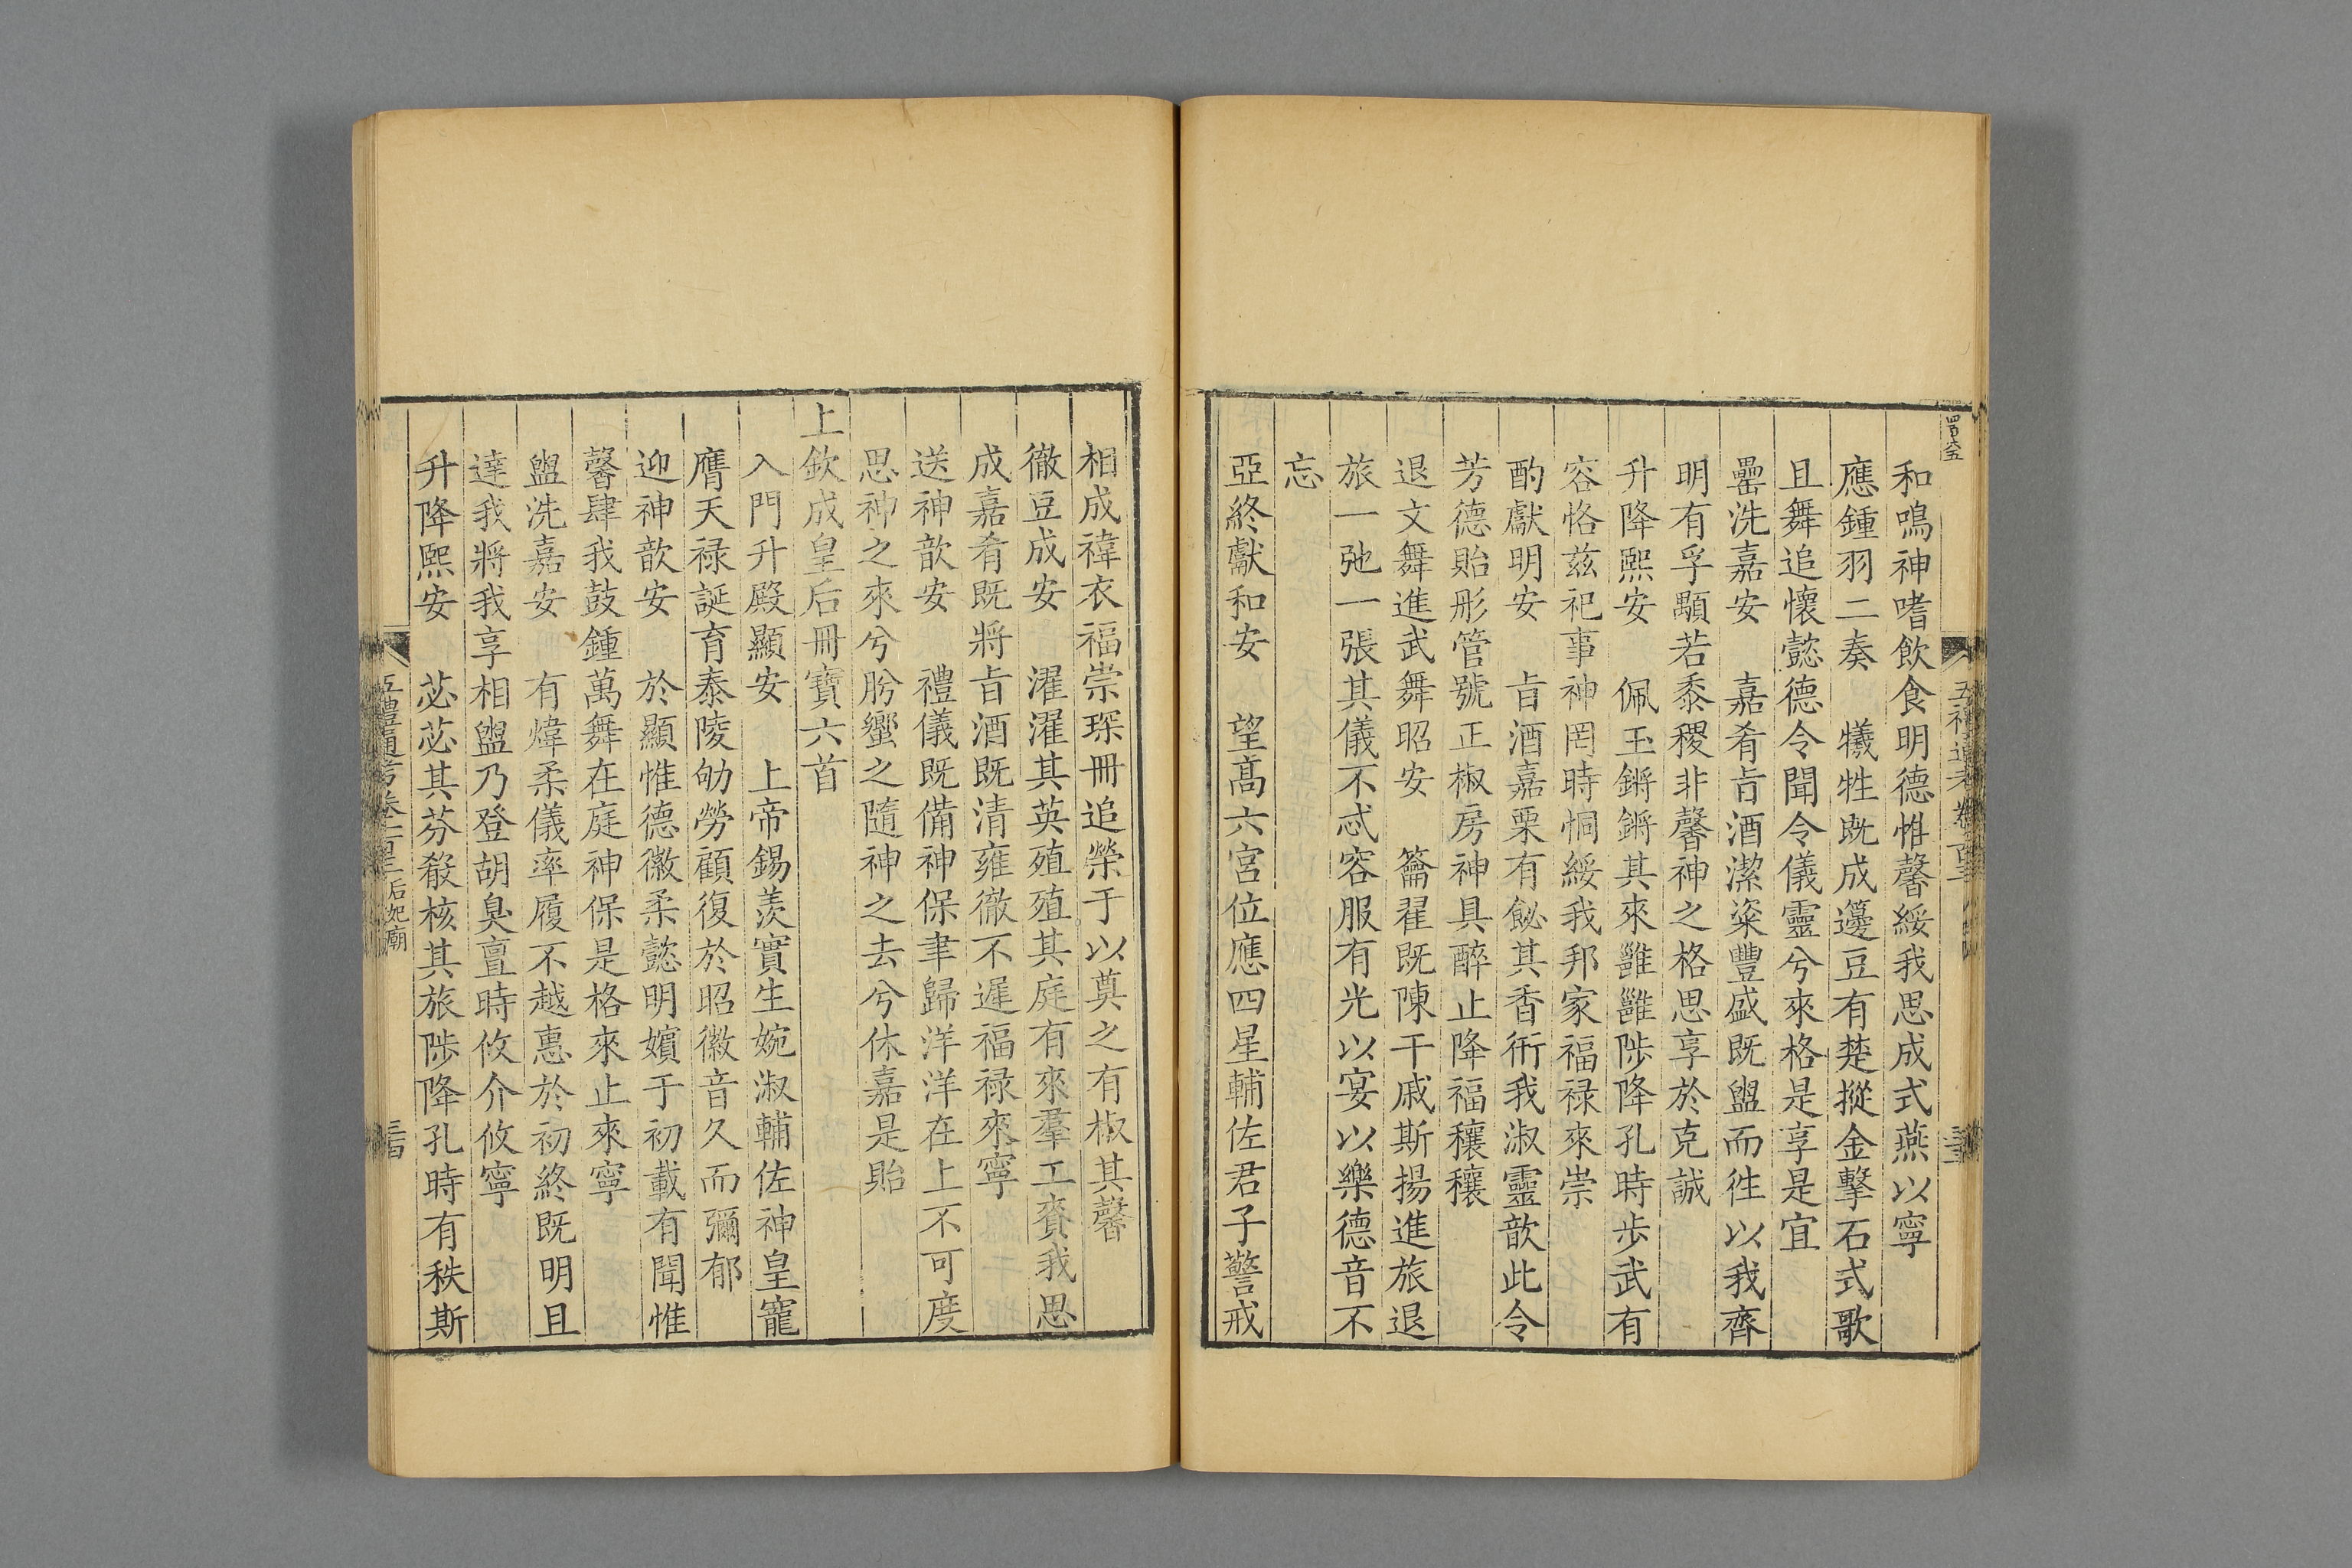 和鳴神嗜飲食明德惟馨綏我思成式燕以寧
應鍾羽二奏　犧牲既成籩豆有楚摐金擊石式歌
且舞追懷懿德令聞令儀靈兮來格是享是宜
罍洗嘉安　嘉肴旨酒潔粢豐盛既盥而往以我齊
明有孚顒若黍稷非馨神之格思享於克誠
升降熙安　佩玉鏘鏘其來雝雝陟降孔時步武有
容恪茲祀事神罔時恫綏我邦家福祿來崇
酌獻明安　旨酒嘉栗有飶其香衎我淑靈歆此令
芳德貽彤管號正椒房神具醉止降福穰穰
退文舞進武舞昭安　籥翟既陳干戚斯揚進旅退
旅一弛一張其儀不忒容服有光以宴以樂德音不
忘
亞終獻和安　望高六宮位應四星輔佐君子警戒
相成褘衣福崇琛冊追榮于以奠之有椒其馨
徹豆成安　濯濯其英殖殖其庭有來羣工賚我思
成嘉肴既將旨酒既清雍徹不遲福祿來寧
送神歆安　禮儀既備神保聿歸洋洋在上不可度
思神之來兮肸蠁之隨神之去兮休嘉是貽
上欽成皇后冊寶六首
入門升殿顯安　上帝錫羨實生婉淑輔佐神皇寵
膺天祿誕育泰陵劬勞顧復於昭徽音久而彌郁
迎神歆安　於顯惟德徽柔懿明嬪于初載有聞惟
馨肆我鼓鍾萬舞在庭神保是格來止來寧
盥洗嘉安　有煒柔儀率履不越惠於初終既明且
達我將我享相盥乃登胡臭亶時攸介攸寧
升降熙安　苾苾其芬殽核其旅陟降孔時有秩斯
五禮通考卷一百三后妃廟